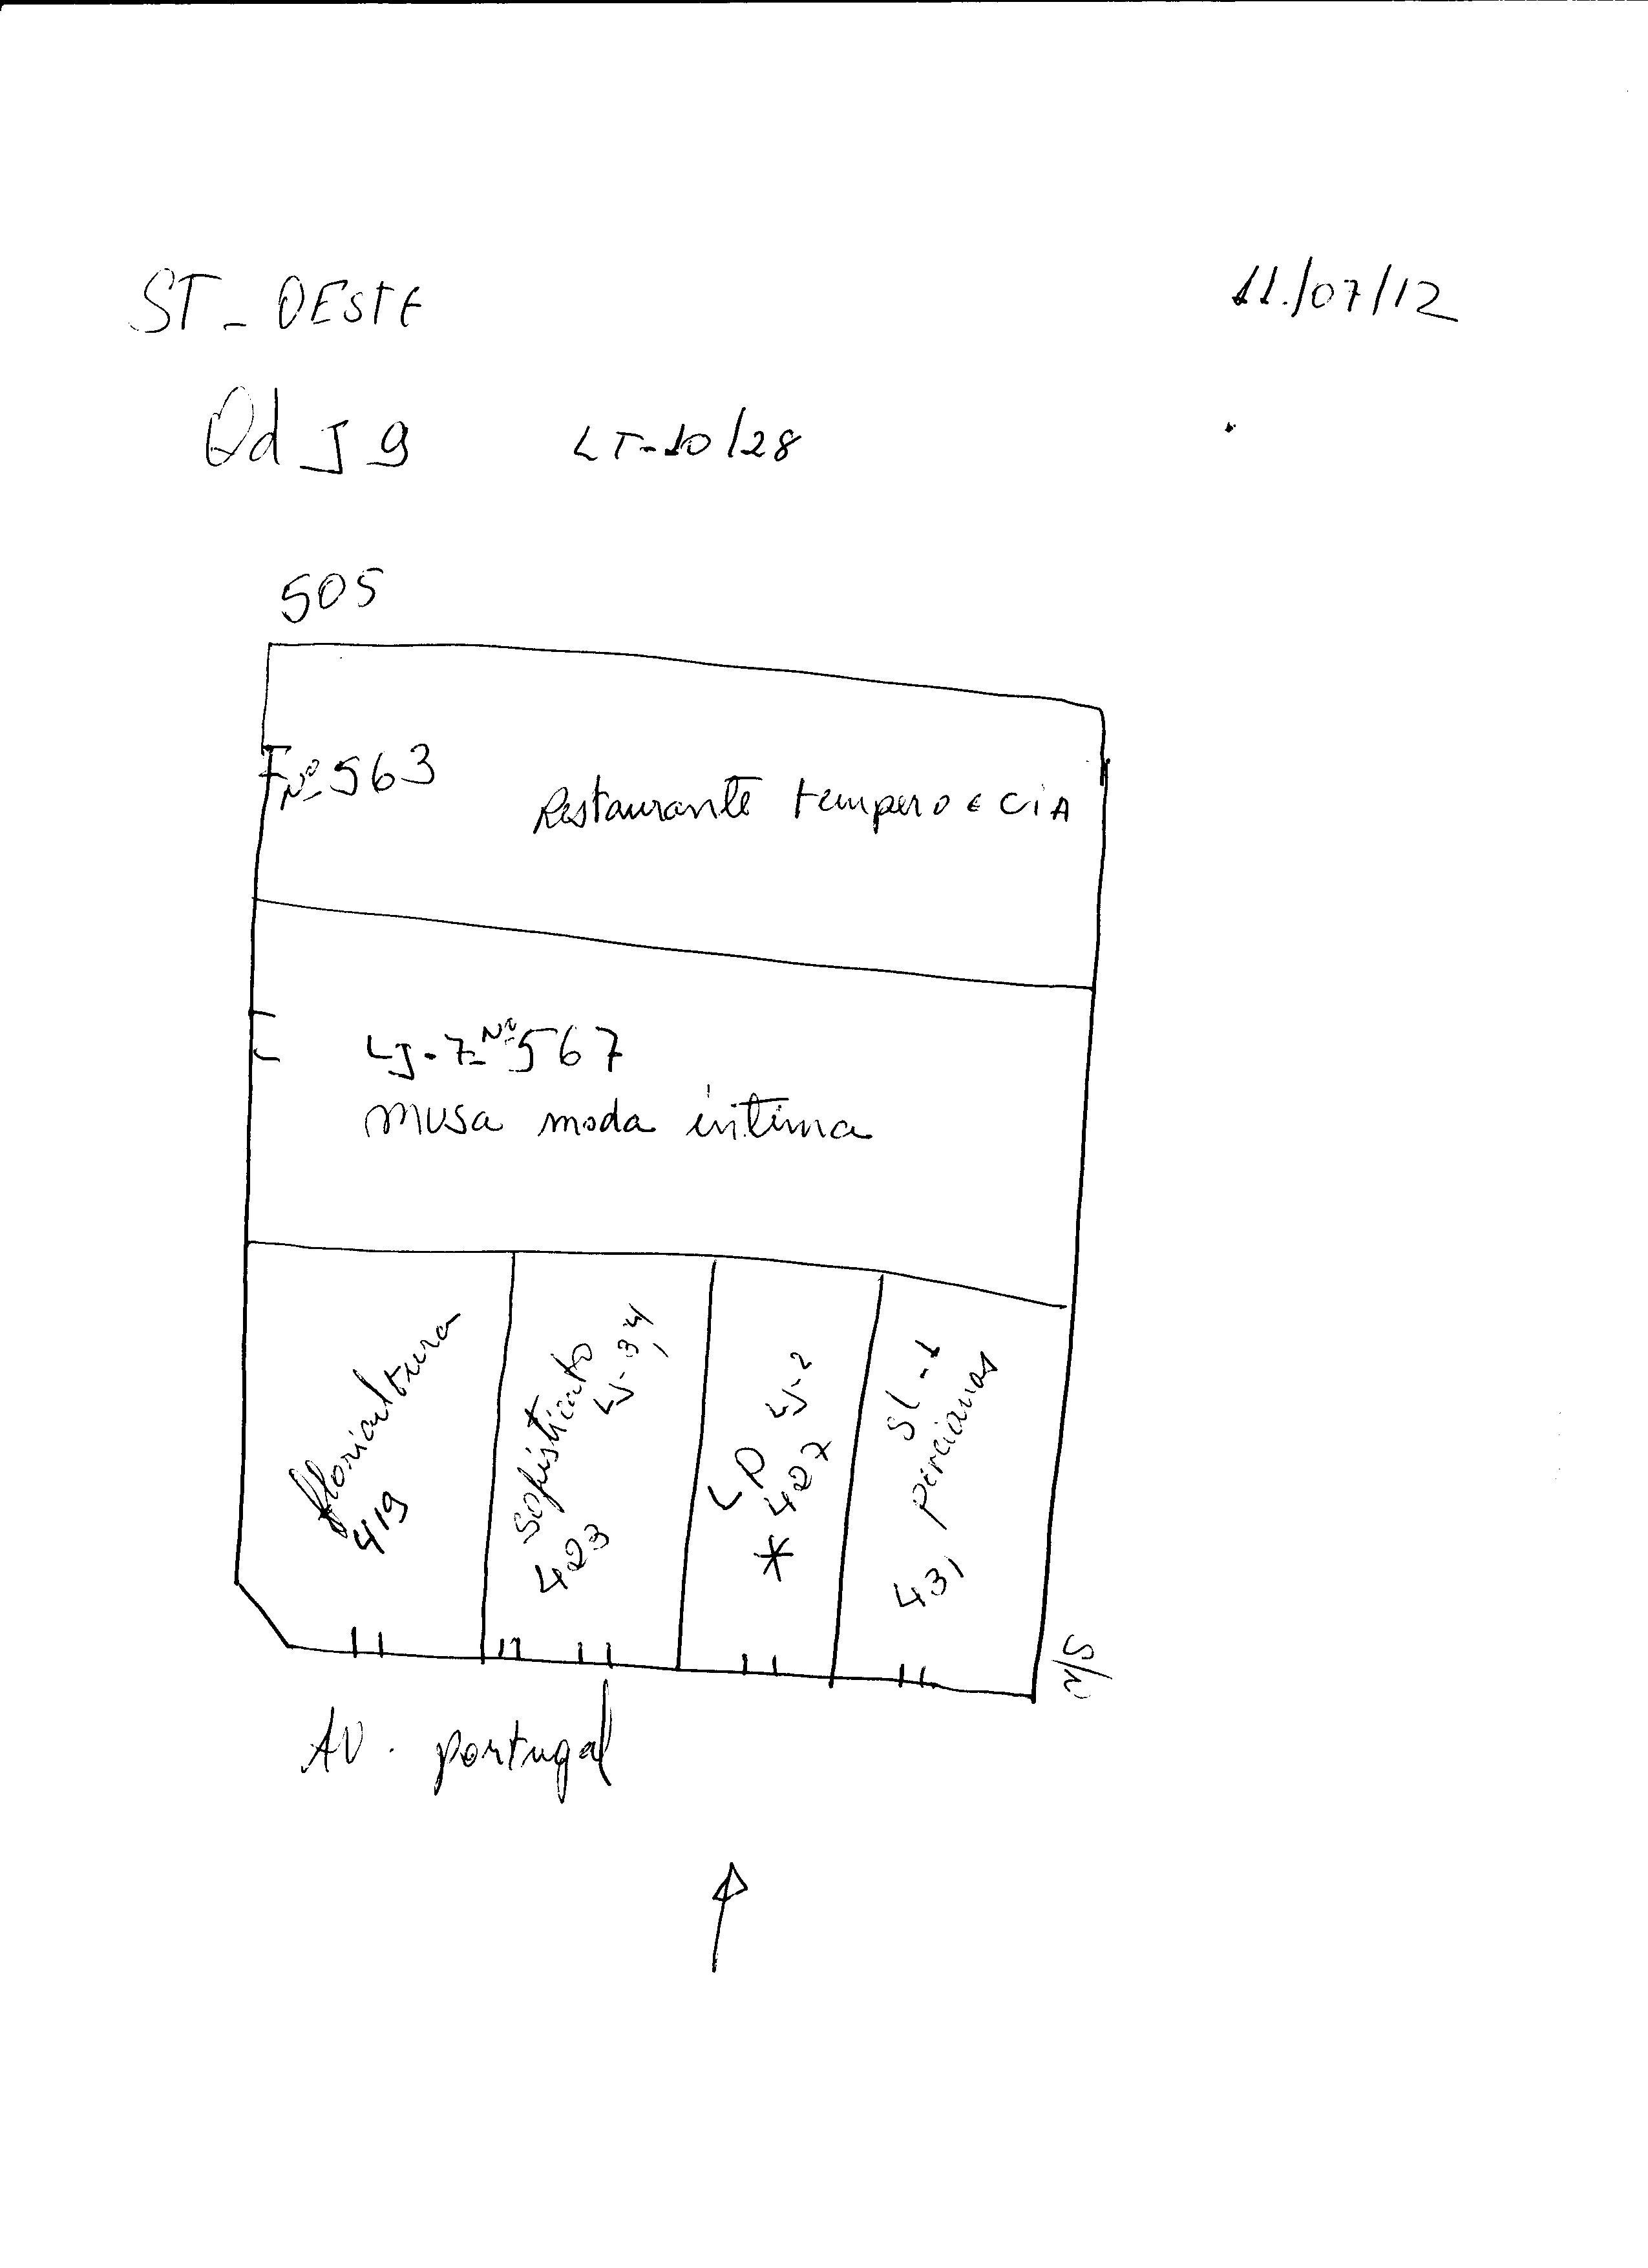 ST - OESTE
11/07/12
Qd J 9 LT-10/28
505
Nº 563
Restaurante tempero e CIA
LJ-7 Nº 567
musa moda intima
floricultura
419
Sofisticato
LJ-3,4
423
LP LJ-2
* 427
SL-1
percianas
431
AV. portugal